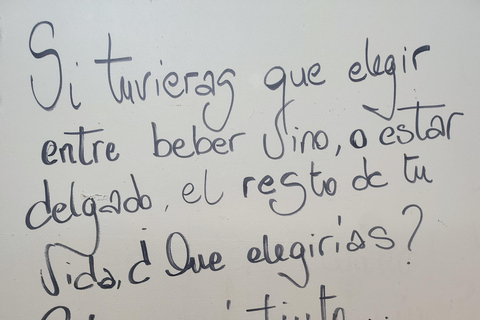 Si tuvieras que elegir
entre beber vino, o estar
delgado, el resto de tu
vida, ¿ Que elegirías?
tinto...